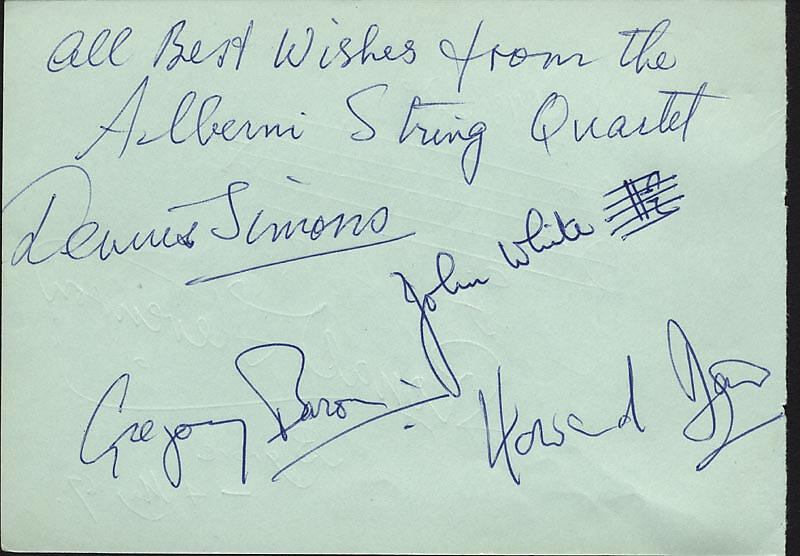 All Best Wishes from the
Alberni String Quartet
Dennis Simons
John White
Gregory Baron
Howard